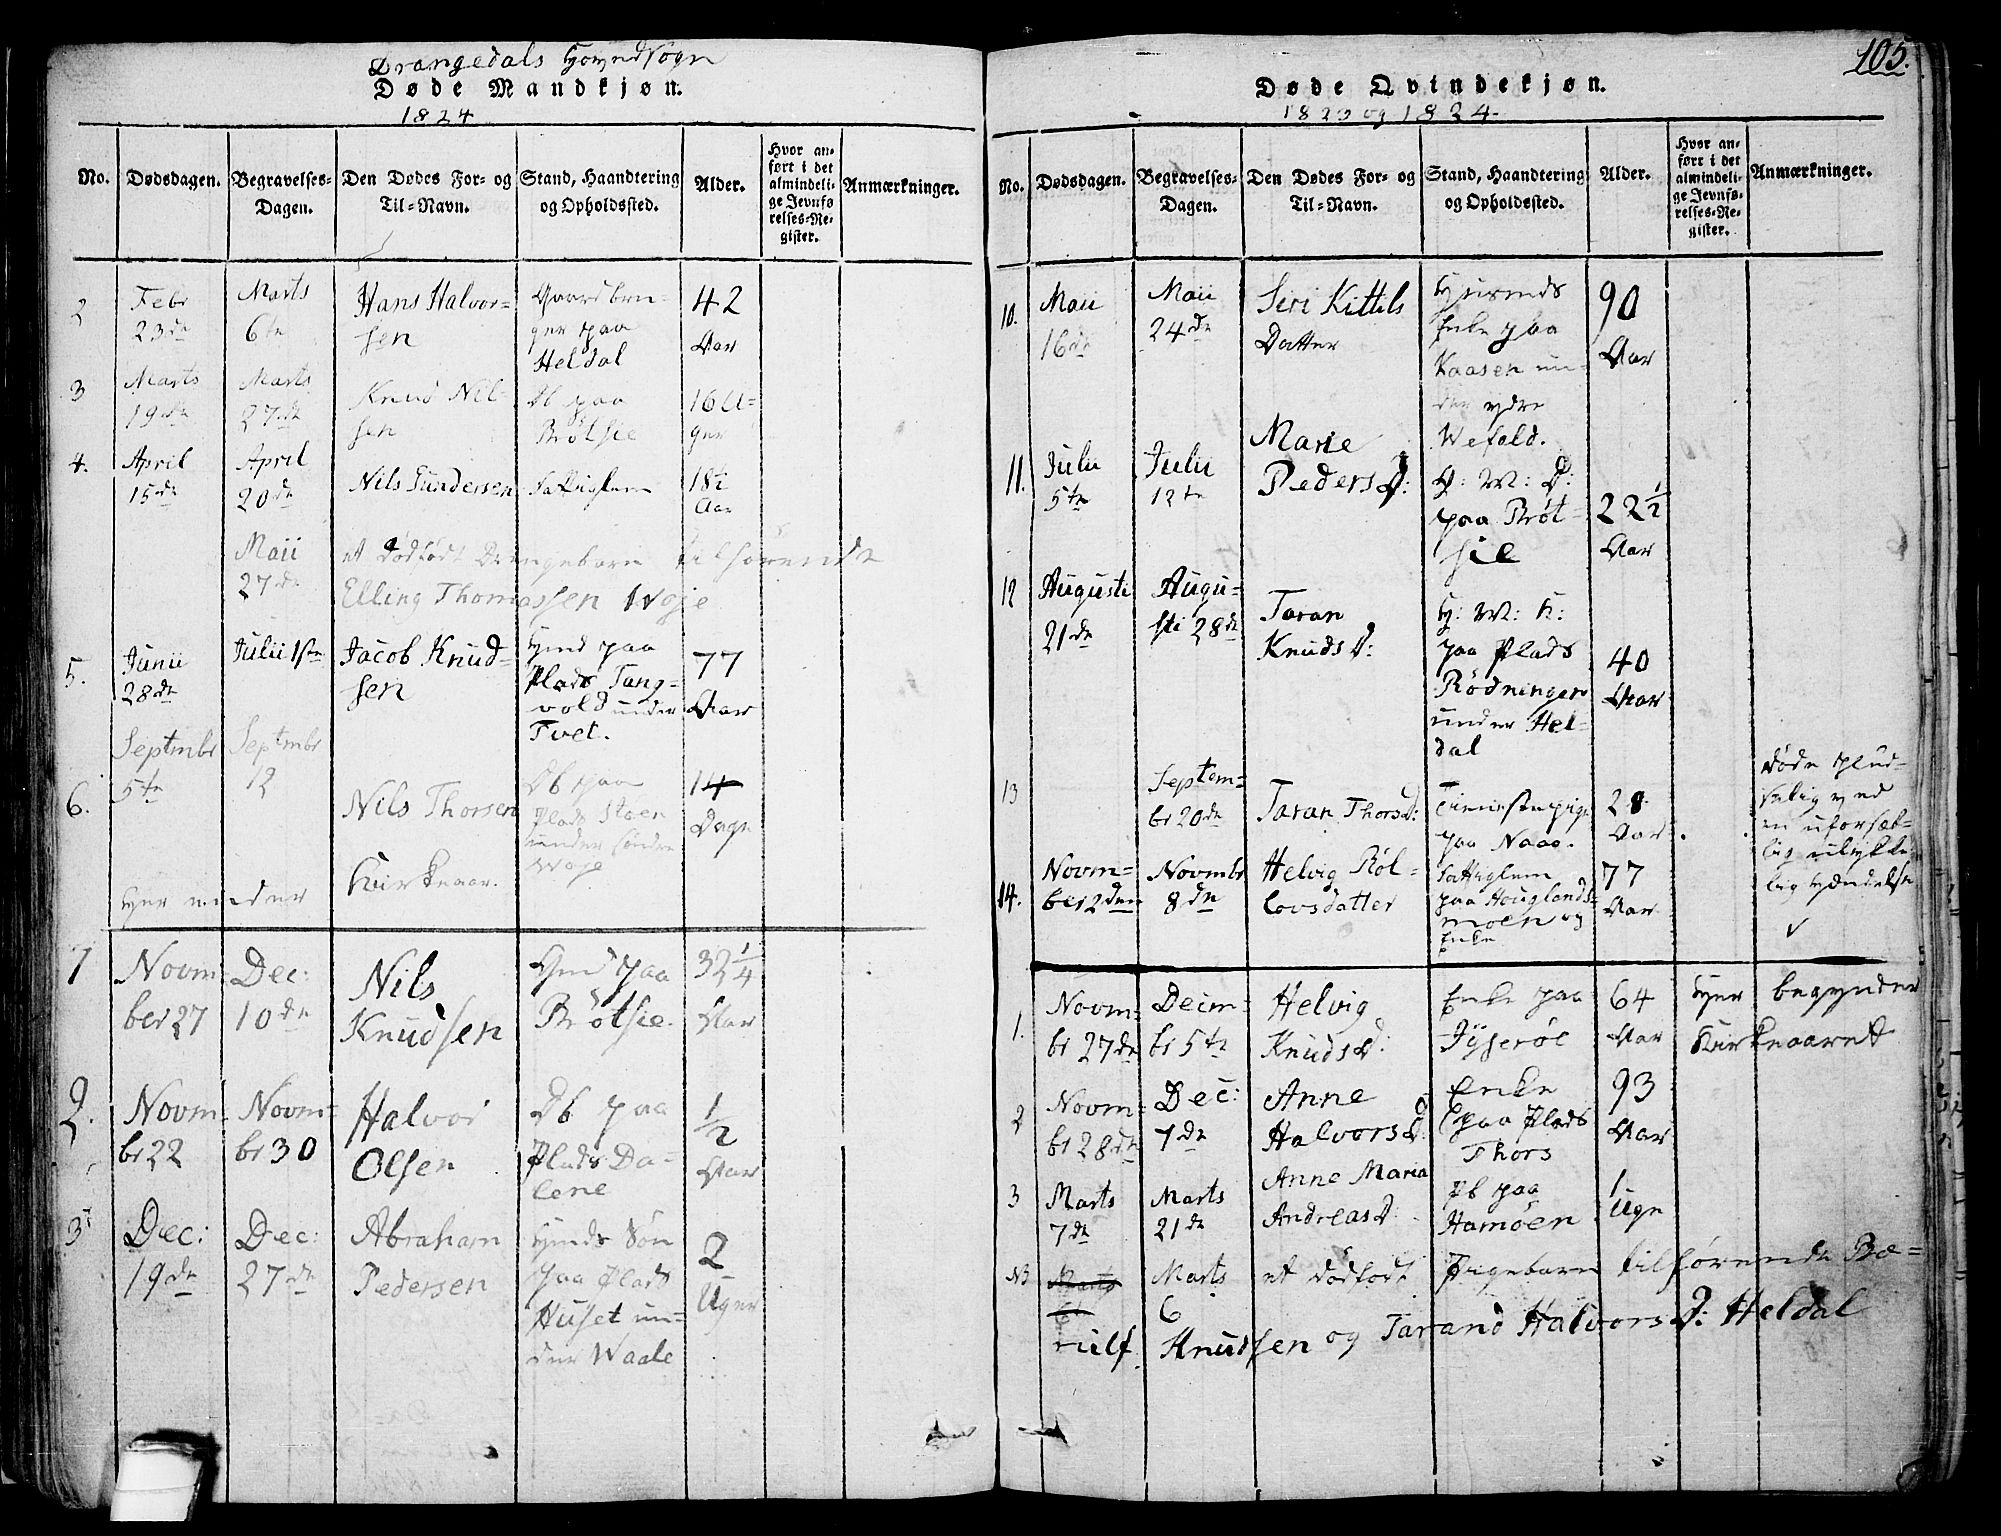 Drangedals HovedSogn
Døde Mandkjøn.
1824
No. Dødsdagen. Begravelses-Dagen. Den Dødes For- og Til-Navn. Stand, Haandtering og Opholdssted. Alder. Hvor anført i det almindelige Jevnførelses-Register. Anmærkninger.
2 Febr 23de Marts 6te Hans Halvorsen Gaardbruger paa Heldal 42 Aar
3 Marts 19de Marts 27de Knud Nilsen Db paa Brötsie 16 Uger
4. April 15de April 20de Nils Gundersen Fattiglem 18½ Aar
Maii 27de et dødfødt Drengebarn tilhørende
Elling Thomassen Woje
5. Junii 28de Julii 1ste Jacob Knudsen Hmd paa Plads Tangvold under Tvet. 77 Aar
6. Septmbr 5te Septmbr 12 Nils Thorsen Db paa Plads Stoen under söndre Woje 14 Dage
Her ender Kirkeaar.
1 Novmber 27 Dec: 10de Nils Knudsen Hmd paa Brötsie. 32¼ Aar
2. Novmbr 22 Novmbr 30 Halvor Olsen Db paa Plads Dalene ½ Aar
3 Dec: 19de Dec: 27de Abraham Pedersen Hmds Søn paa Plads Huset under Waale 2 Uger
105.
Døde Qvindekjøn.
1823 og 1824.
No. Dødsdagen. Begravelses-Dagen. Den Dødes For- og Til-Navn. Stand, Haandtering og Opholdssted. Alder. Hvor anført i det almindelige Jevnførelses-Register. Anmærkninger.
10. Maii 16de Maii 24de Siri Kittils Datter Husmds Enke paa Kaasen under ydre Wefald. 90 Aar
11. Julii 5te Julii 12te Marie Peders D: G: M: D: paa Bröt-sie 22½ Aar
12 Augusti 21de Augusti 28de Taran Knuds D: H: M: K: paa Plads Rödningen under Heldal 40 Aar
13 Septembr 20de Taran Thors D: Tienistepige paa Naas. 28 Aar døde pludselig ved en uforsætlig ulykkelig Hændelse
14. Novmber 2den Novmbr 8de Helvig Rollovsdatter Fattiglem paa Houglandsmoen og Enke 77 Aar
1. Novmbr 27de Decimbr 5te Helvig Knuds D: Enke paa 64 Aar Her begynder Kirkeaaret
2 Novmbr 28de Dec: 7de Anne Halvors D: Enke paa Plads Thors 93 Aar
3 Marts 7de Marts 21de Anne Maria Andreas D: Db paa Hamöen 1 Uge
NB Marts 6 Marts 6 et dødfødt Pigebarn tilhørende Bæ-
rulf Knudsen og Tarand Halvors D: Heldal